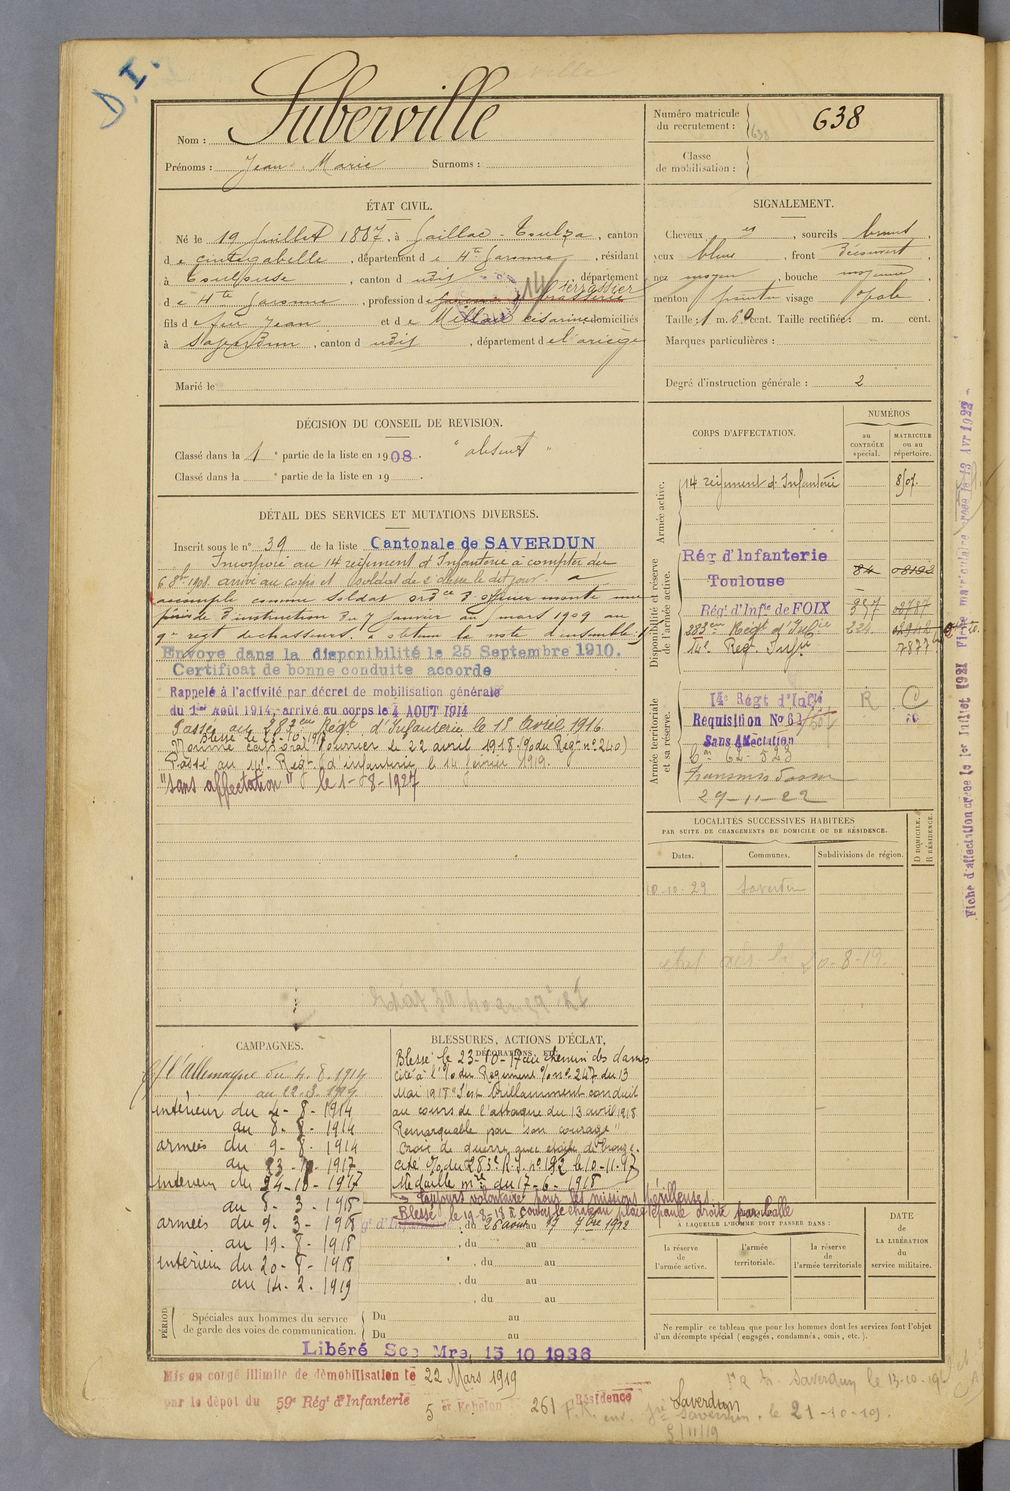 D. I.
Nom : Suberville
Prénoms : Jean Marie Surnoms :
Numéro matricule du recrutement : 638
Classe de mobilisation :
ÉTAT CIVIL.
Né le 19 Juillet 1887, à Gaillac-Toulza, canton
d e Cintegabelle, département d e Hte Garonne, résidant
à Toulouse, canton d udit, département
d e Hte Garonne, profession d e terrassier
fils d e feu Jean et d e Millau Césarine domiciliés
à Saverdun, canton d udit, département d e l'ariège
Marié le
SIGNALEMENT.
Cheveux et, sourcils bruns
yeux bleus, front découvert
nez moyen, bouche moyenne
menton pointu visage ovale
Taille : 1 m. 60 cent. Taille rectifiée : m. cent.
Marques particulières :
Degré d'instruction générale : 2
DÉCISION DU CONSEIL DE REVISION.
Classé dans la 1 e partie de la liste en 1908. "absent"
Classé dans la e partie de la liste en 19 .
DÉTAIL DES SERVICES ET MUTATIONS DIVERSES.
Inscrit sous le n° 39 de la liste Cantonale de SAVERDUN
Incorporé au 14 régiment d'Infanterie à compter du
6 8bre 1908. arrivé au corps et soldat de 2e classe le dit jour. a
accompli comme soldat ordce d'officier monté une
période d'instruction du 7 janvier au mars 1909 au
9e régt de chasseurs. a obtenu la note d'ensemble
Envoyé dans la disponibilité le 25 Septembre 1910.
Certificat de bonne conduite accordé
Rappelé à l'activité par décret de mobilisation générale
du 1er Août 1914, arrivé au corps le 4 AOUT 1914
Passé au 283eme Régt d'Infanterie le 18 Avril 1916.
Blessé le 23-10-1917
Nommé caporal fourrier le 22 avril 1918 (O/o du Régt n° 240)
Passé au 14e Régt d'infanterie le 14 février 1919.
"sans affectation" le 1-08-1927
CORPS D'AFFECTATION.
NUMÉROS
au CONTRÔLE spécial.
MATRICULE ou au répertoire.
Armée active.
14 régiment d'Infanterie
Disponibilité et réserve de l'armée active.
Rég d'Infanterie
Toulouse 84 08192
Régt d'Infie de FOIX
283eme Régt d'Infie
14e Reg. Infie 7877
Armée territoriale et sa réserve.
14e Régt d'Infie R C
Requisition No 62
Sans Affectation
29-11-22
Fiche d'affectation créée le 1er Juillet 1921 Fiche matriculaire créée le 13 Avr 1922
LOCALITÉS SUCCESSIVES HABITÉES
PAR SUITE DE CHANGEMENTS DE DOMICILE OU DE RÉSIDENCE.
Dates. Communes. Subdivisions de région. D DOMICILE. R RÉSIDENCE.
10-10-29 Saverdun
20-8-19.
CAMPAGNES.
c/ l'Allemagne du 4.8.1914
au 22-3-1919
intérieur du 4-8-1914
au 8-8-1914
armées du 9-8-1914
au 23-10-1917
intérieur du 24-10-1917
au 8-3-1918
armées du 9-3-1918
au 19-8-1918
intérieur du 20-8-1918
au 14-2-1919
BLESSURES, ACTIONS D'ÉCLAT,
DÉCORATIONS, ETC.
Blessé le 23-10-17 au chemin des dames
cité à l'O/o du Régiment O/o n° 247 du 13
Mai 1918 "S'est brillamment conduit
au cours de l'attaque du 13 avril 1918
Remarquable par son courage"
Croix de guerre avec étoile de bronze.
cité O/o du 283e R.I. n° 192 le 10-11-17
Médaille mre du 17-6-1918
toujours volontaire pour les missions périlleuses.
Blessé le 19-8-18 à plaie épaule droite par balle
, du 26 août au 17 7bre 1912
, du au
, du au
, du au
, du au
À LAQUELLE L'HOMME DOIT PASSER DANS :
la réserve de l'armée active.
l'armée territoriale.
la réserve de l'armée territoriale
DATE de LA LIBÉRATION du service militaire.
PÉRIOD
Spéciales aux hommes du service
de garde des voies de communication.
Du au
Du au
Ne remplir ce tableau que pour les hommes dont les services font l'objet
d'un décompte spécial (engagés, condamnés, omis, etc.).
Libéré Sce Mre, 15 10 1936
Mis en congé illimité de démobilisation le 22 Mars 1919
par le dépot du 59e Régt d'Infanterie
5 e Echelon 261 Résidence Saverdun
Saverdun le 13-10-19
Saverdun, le 21-10-19.